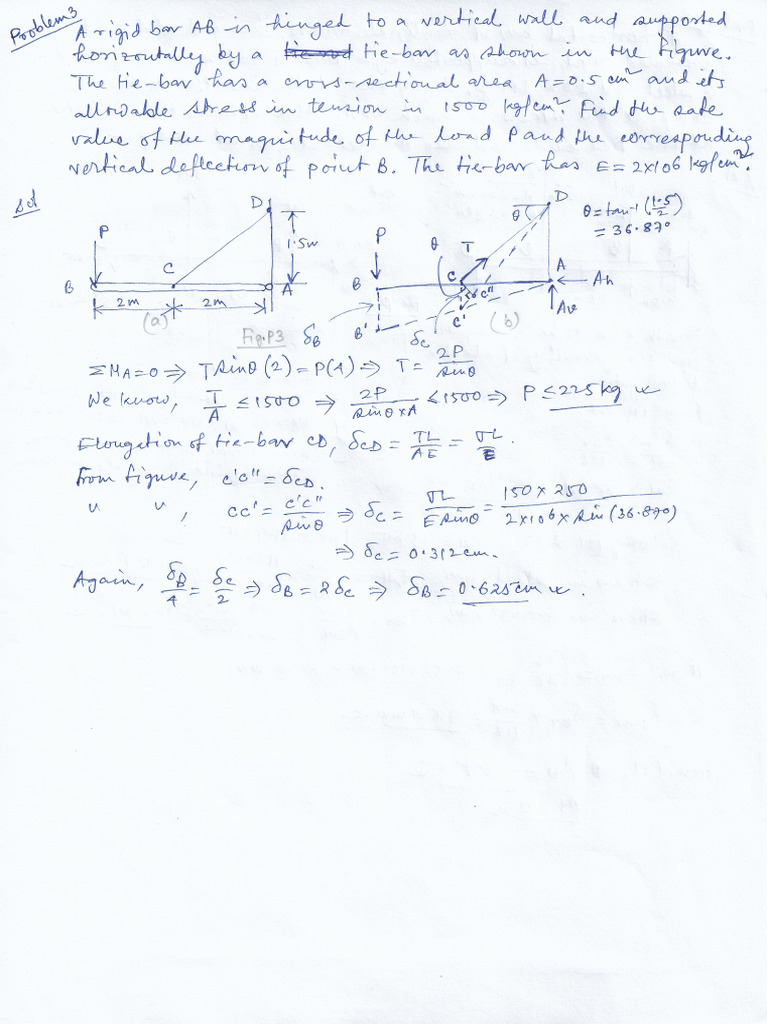 Problem 3
A rigid bar AB is hinged to a vertical wall and supported
horizontally by a tie-bar as shown in the figure.
The tie-bar has a cross-sectional area A=0.5 cm² and its
allowable stress in tension in 1500 kg/cm². Find the safe
value of the magnitude of the load P and the corresponding
vertical deflection of point B. The tie-bar has E = 2×10⁶ kg/cm².
Sol
D
P
1.5m
C
B
A
2m
2m
(a)
Fig.P3
D
θ
θ = tan⁻¹ (1.5/2)
= 36.87°
P
θ
T
B
C
A
Ah
C''
C'
B'
Av
δB
δC
(b)
ΣMA=0 ⇒ T sinθ (2) = P(4) ⇒ T = 2P/sinθ
We know, T/A ≤ 1500 ⇒ 2P/sinθ×A ≤ 1500 ⇒ P ≤ 225 kg
Elongation of tie-bar CD, δCD = TL/AE = σL/E.
From figure, C'C'' = δCD.
" ", CC' = C'C''/sinθ ⇒ δC = σL/E sinθ = 150 × 250/2×10⁶ × sin (36.87°)
⇒ δC = 0.312 cm.
Again, δB/4 = δC/2 ⇒ δB = 2δC ⇒ δB = 0.625 cm